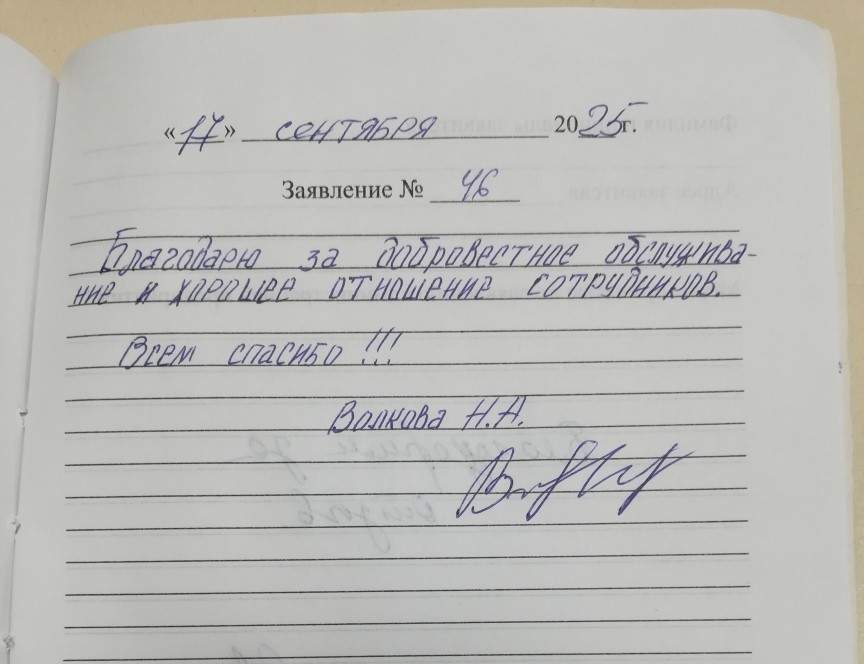 «17» сентября 2025г.
Заявление № 46
Благодарю за добровестное обслужива-
ние и хорошее отношение сотрудников.
Всем спасибо !!!
Волкова Н.А.